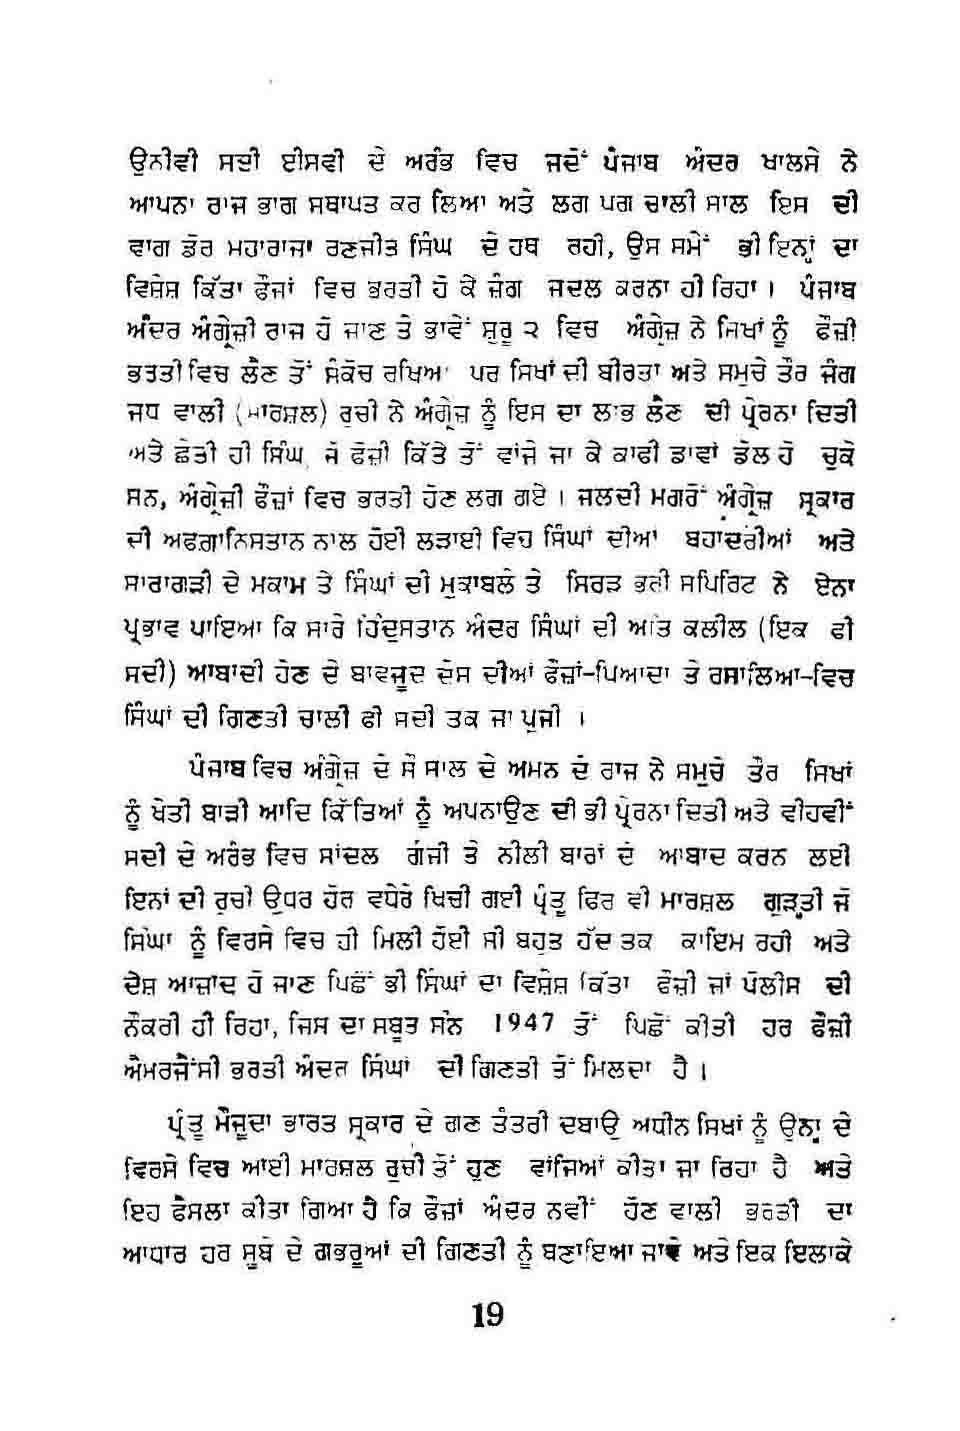 ਉਨੀਵੀ ਸਦੀ ਈਸਵੀ ਦੇ ਅਰੰਭ ਵਿਚ ਜਦੋਂ ਪੰਜਾਬ ਅੰਦਰ ਖਾਲਸੇ ਨੇ
ਆਪਨਾ ਰਾਜ ਭਾਗ ਸਥਾਪਤ ਕਰ ਲਿਆ ਅਤੇ ਲਗ ਪਗ ਚਾਲੀ ਸਾਲ ਇਸ ਦੀ
ਵਾਗ ਡੋਰ ਮਹਾਰਾਜਾ ਰਣਜੀਤ ਸਿੰਘ ਦੇ ਹਥ ਰਹੀ, ਉਸ ਸਮੇਂ ਭੀ ਇਨ੍ਹਾਂ ਦਾ
ਵਿਸ਼ੇਸ਼ ਕਿੱਤਾ ਫੌਜਾਂ ਵਿਚ ਭਰਤੀ ਹੋ ਕੇ ਜੰਗ ਜਦਲ ਕਰਨਾ ਹੀ ਰਿਹਾ। ਪੰਜਾਬ
ਅੰਦਰ ਅੰਗ੍ਰੇਜ਼ੀ ਰਾਜ ਹੋ ਜਾਣ ਤੇ ਭਾਵੇਂ ਸ਼ੁਰੂ ੨ ਵਿਚ ਅੰਗ੍ਰੇਜ਼ ਨੇ ਸਿਖਾਂ ਨੂੰ ਫੌਜ਼ੀ
ਭਰਤੀ ਵਿਚ ਲੈਣ ਤੋਂ ਸੰਕੋਚ ਰਖਿਆ ਪਰ ਸਿਖਾਂ ਦੀ ਬੀਰਤਾ ਅਤੇ ਸਮੁਚੇ ਤੌਰ ਜੰਗ
ਜਧ ਵਾਲੀ (ਮਾਰਸ਼ਲ) ਰੁਚੀ ਨੇ ਅੰਗ੍ਰੇਜ਼ ਨੂੰ ਇਸ ਦਾ ਲਾਭ ਲੈਣ ਦੀ ਪ੍ਰੇਰਨਾ ਦਿਤੀ
ਅਤੇ ਛੇਤੀ ਹੀ ਸਿੰਘ ਜੋ ਫੌਜੀ ਕਿੱਤੇ ਤੋਂ ਵਾਂਜੇ ਜਾ ਕੇ ਕਾਫੀ ਡਾਵਾਂ ਡੋਲ ਹੋ ਚੁਕੇ
ਸਨ, ਅੰਗ੍ਰੇਜ਼ੀ ਫੌਜ਼ਾਂ ਵਿਚ ਭਰਤੀ ਹੋਣ ਲਗ ਗਏ। ਜਲਦੀ ਮਗਰੋਂ ਅੰਗ੍ਰੇਜ਼ ਸ੍ਰਕਾਰ
ਦੀ ਅਫਗ਼ਾਨਿਸਤਾਨ ਨਾਲ ਹੋਈ ਲੜਾਈ ਵਿਚ ਸਿੰਘਾਂ ਦੀਆਂ ਬਹਾਦਰੀਆਂ ਅਤੇ
ਸਾਰਾਗੜੀ ਦੇ ਮਕਾਮ ਤੇ ਸਿੰਘਾਂ ਦੀ ਮੁਕਾਬਲੇ ਤੇ ਸਿਰੜ ਭਰੀ ਸਪਿਰਿਟ ਨੇ ਏਨਾ
ਪ੍ਰਭਾਵ ਪਾਇਆ ਕਿ ਸਾਰੇ ਹਿੰਦੁਸਤਾਨ ਅੰਦਰ ਸਿੰਘਾਂ ਦੀ ਅਤਿ ਕਲੀਲ (ਇਕ ਫੀ
ਸਦੀ) ਆਬਾਦੀ ਹੋਣ ਦੇ ਬਾਵਜੂਦ ਦੇਸ ਦੀਆਂ ਫੌਜ਼ਾਂ-ਪਿਆਦਾ ਤੇ ਰਸਾਲਿਆ-ਵਿਚ
ਸਿੰਘਾਂ ਦੀ ਗਿਣਤੀ ਚਾਲੀ ਫੀ ਸਦੀ ਤਕ ਜਾ ਪੁਜੀ।
ਪੰਜਾਬ ਵਿਚ ਅੰਗ੍ਰੇਜ਼ ਦੇ ਸੌ ਸਾਲ ਦੇ ਅਮਨ ਦੇ ਰਾਜ ਨੇ ਸਮੁਚੇ ਤੌਰ ਸਿਖਾਂ
ਨੂੰ ਖੇਤੀ ਬਾੜੀ ਆਦਿ ਕਿੱਤਿਆਂ ਨੂੰ ਅਪਨਾਉਣ ਦੀ ਭੀ ਪ੍ਰੇਰਨਾ ਦਿਤੀ ਅਤੇ ਵੀਹਵੀਂ
ਸਦੀ ਦੇ ਅਰੰਭ ਵਿਚ ਸਾਂਦਲ ਗੰਜੀ ਤੇ ਨੀਲੀ ਬਾਰਾਂ ਦੇ ਆਬਾਦ ਕਰਨ ਲਈ
ਇਨਾਂ ਦੀ ਰੁਚੀ ਉਧਰ ਹੋਰ ਵਧੇਰੇ ਖਿਚੀ ਗਈ ਪ੍ਰੰਤੂ ਫਿਰ ਵੀ ਮਾਰਸ਼ਲ ਗੁੜ੍ਹਤੀ ਜੋ
ਸਿੰਘਾ ਨੂੰ ਵਿਰਸੇ ਵਿਚ ਹੀ ਮਿਲੀ ਹੋਈ ਸੀ ਬਹੁਤ ਹੱਦ ਤਕ ਕਾਇਮ ਰਹੀ ਅਤੇ
ਦੇਸ਼ ਆਜ਼ਾਦ ਹੋ ਜਾਣ ਪਿਛੋਂ ਭੀ ਸਿੰਘਾਂ ਦਾ ਵਿਸ਼ੇਸ਼ ਕਿੱਤਾ ਫੌਜ਼ੀ ਜਾਂ ਪੋਲੀਸ ਦੀ
ਨੌਕਰੀ ਹੀ ਰਿਹਾ, ਜਿਸ ਦਾ ਸਬੂਤ ਸੰਨ 1947 ਤੋਂ ਪਿਛੋਂ ਕੀਤੀ ਹਰ ਫੌਜ਼ੀ
ਐਮਰਜੈਂਸੀ ਭਰਤੀ ਅੰਦਰ ਸਿੰਘਾਂ ਦੀ ਗਿਣਤੀ ਤੋਂ ਮਿਲਦਾ ਹੈ।
ਪ੍ਰੰਤੂ ਮੌਜੂਦਾ ਭਾਰਤ ਸ੍ਰਕਾਰ ਦੇ ਗਣ ਤੰਤਰੀ ਦਬਾਉ ਅਧੀਨ ਸਿਖਾਂ ਨੂੰ ਉਨ੍ਹਾ ਦੇ
ਵਿਰਸੇ ਵਿਚ ਆਈ ਮਾਰਸ਼ਲ ਰੁਚੀ ਤੋਂ ਹੁਣ ਵਾਂਜਿਆਂ ਕੀਤਾ ਜਾ ਰਿਹਾ ਹੈ ਅਤੇ
ਇਹ ਫੈਸਲਾ ਕੀਤਾ ਗਿਆ ਹੈ ਕਿ ਫੌਜ਼ਾਂ ਅੰਦਰ ਨਵੀਂ ਹੋਣ ਵਾਲੀ ਭਰਤੀ ਦਾ
ਆਧਾਰ ਹਰ ਸੂਬੇ ਦੇ ਗਭਰੂਆਂ ਦੀ ਗਿਣਤੀ ਨੂੰ ਬਣਾਇਆ ਜਾਵੇ ਅਤੇ ਇਕ ਇਲਾਕੇ
19